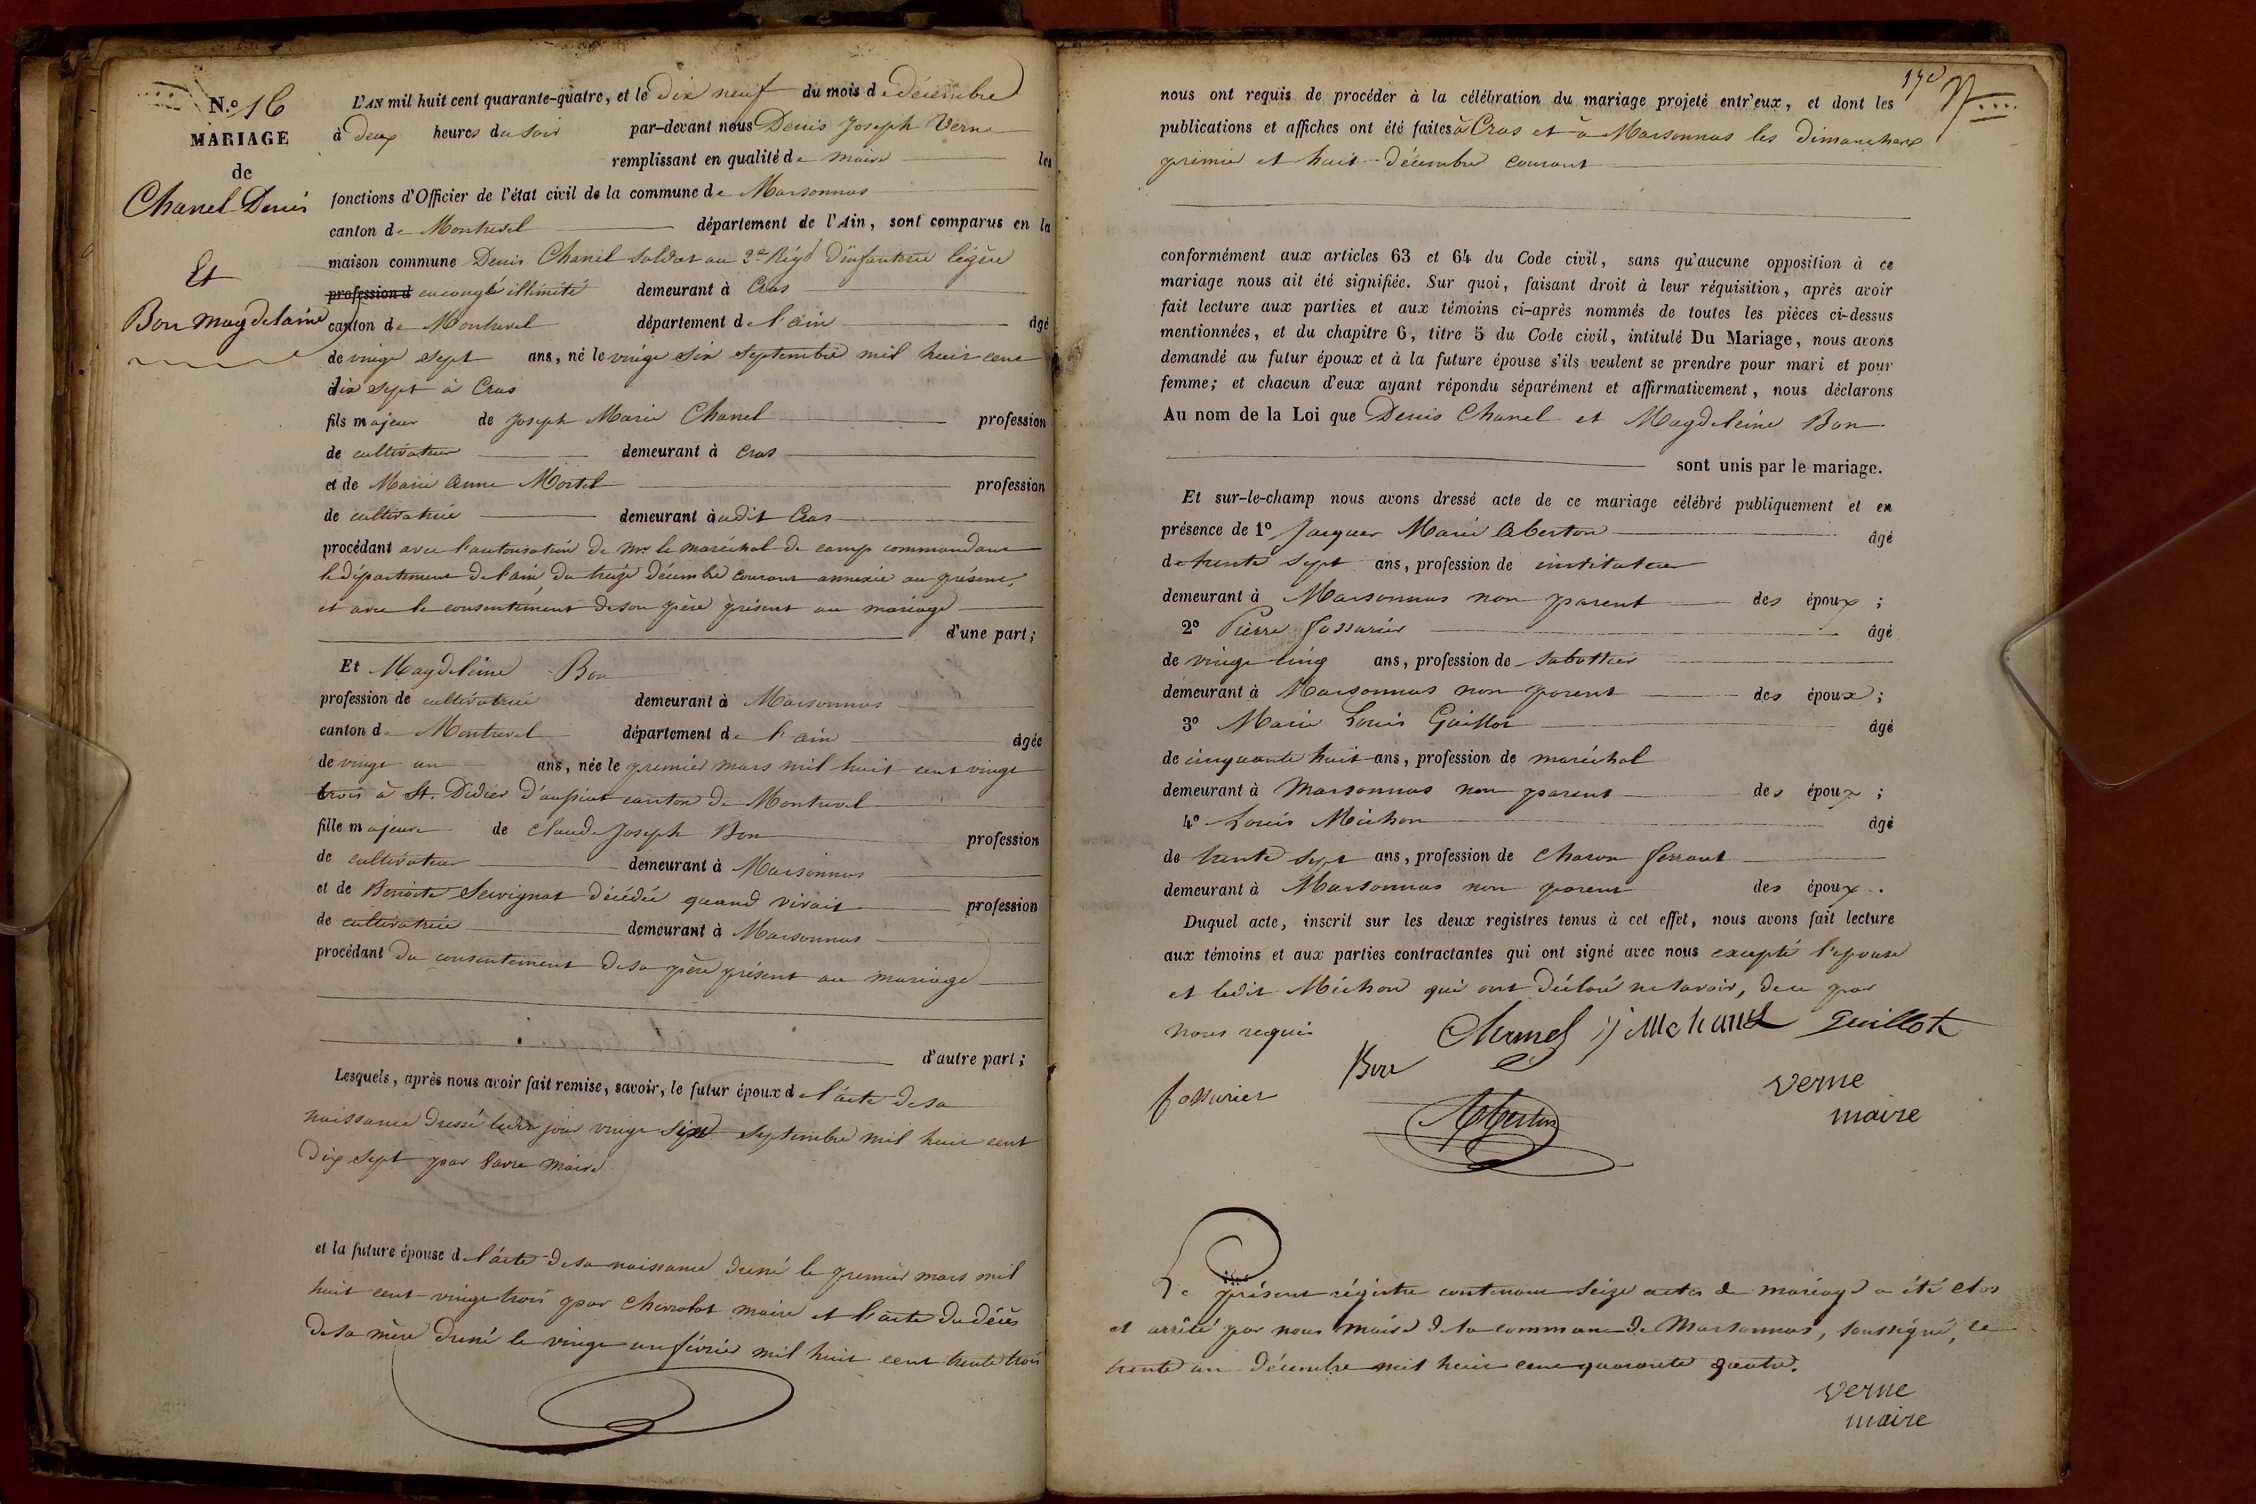 N.º 16
MARIAGE
de
Chanel Denis
Et
Bon Magdelaine
L'AN mil huit cent quarante-quatre, et le dix neuf du mois de décembre
à deux heures du soir par-devant nous Denis Joseph Verne
remplissant en qualité de maire les
fonctions d'Officier de l'état civil de la commune de Marsonnas
canton de Montrevel département de l'Ain, sont comparus en la
maison commune Denis Chanel soldat au 2e Régt d'infanterie légère
profession d en congé illimité demeurant à Cras
canton de Montrevel département de l'ain âgé
de vingt sept ans, né le vingt six septembre mil huit cent
dix sept à Cras
fils majeur de Joseph Marie Chanel profession
de cultivateur demeurant à Cras
et de Marie Anne Mortel profession
de cultivatrice demeurant audit Cras
procédant avec l'autorisation de Mr le maréchal de camp commandant
le département de l'ain du treize décembre courant annexée au présent,
et avec le consentement de son père présent au mariage
d'une part;
Et Magdeleine Bon
profession de cultivatrice demeurant à Marsonnas
canton de Montrevel département de l'ain âgée
de vingt un ans, née le premier mars mil huit cent vingt
trois à St. Didier d'aussiat canton de Montrevel
fille majeure de Claude Joseph Bon profession
de cultivateur demeurant à Marsonnas
et de Benoite Servignat décédée quand vivait profession
de cultivatrice demeurant à Marsonnas
procédant du consentement de sa père présent au mariage
d'autre part;
Lesquels, après nous avoir fait remise, savoir, le futur époux de l'acte de sa
naissance dressé ledit jour vingt six septembre mil huit cent
dix sept par favre maire
et la future épouse de l'acte de sa naissance dressé le premier mars mil
huit cent vingt trois par Chevrolat maire et l'acte du décès
de sa mère dressé le vingt un février mil huit cent trente trois
nous ont requis de procéder à la célébration du mariage projeté entr'eux, et dont les
publications et affiches ont été faites à Cras et à Marsonnas les dimanches
premier et huit décembre courant
conformément aux articles 63 et 64 du Code civil, sans qu'aucune opposition à ce
mariage nous ait été signifiée. Sur quoi, faisant droit à leur réquisition, après avoir
fait lecture aux parties et aux témoins ci-après nommés de toutes les pièces ci-dessus
mentionnées, et du chapitre 6, titre 5 du Code civil, intitulé Du Mariage, nous avons
demandé au futur époux et à la future épouse s'ils veulent se prendre pour mari et pour
femme; et chacun d'eux ayant répondu séparément et affirmativement, nous déclarons
Au nom de la Loi que Denis Chanel et Magdeleine Bon
sont unis par le mariage.
Et sur-le-champ nous avons dressé acte de ce mariage célébré publiquement et en
présence de 1º Jacques Marie Aberton âgé
de trente sept ans, profession de instituteur
demeurant à Marsonnas non parent des époux;
2º Pierre fossurier âgé
de vingt cinq ans, profession de sabottier
demeurant à Marsonnas non parent des époux;
3º Marie Louis Guillot âgé
de cinquante huit ans, profession de maréchal
demeurant à Marsonnas non parent des époux;
4º Louis Michon âgé
de trente sept ans, profession de charon ferrant
demeurant à Marsonnas non parent des époux.
Duquel acte, inscrit sur les deux registres tenus à cet effet, nous avons fait lecture
aux témoins et aux parties contractantes qui ont signé avec nous excepté l'épouse
et ledit Michon qui ont déclaré ne savoir, de ce par
nous requis
Chanel Guillot
Bon
fossurier
Aberton
Verne
maire
Le présent régistre contenant seize actes de mariage a été clos
et arrêté par nous maire de la commune de Marsonnas, soussigné, le
trente un décembre mil huit cent quarante quatre.
Verne
maire